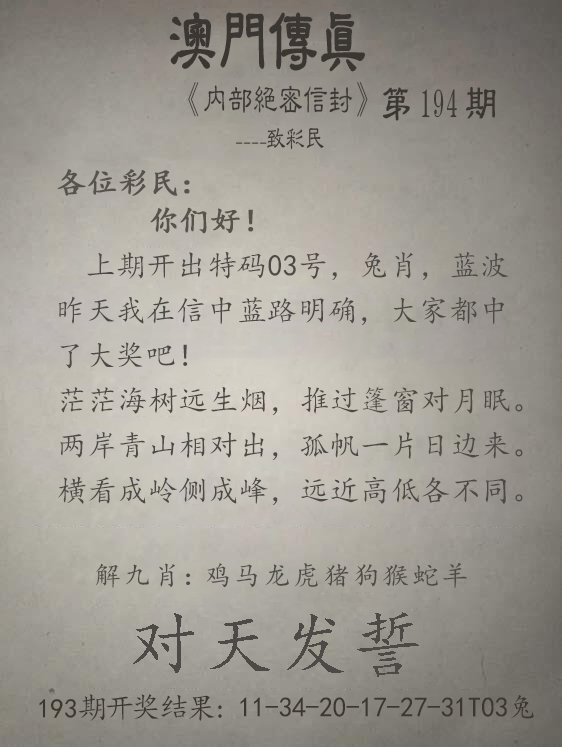 澳門傳眞
《内部絕密信封》第194期
----致彩民
各位彩民：
你们好！
上期开出特码03号，兔肖，蓝波
昨天我在信中蓝路明确，大家都中
了大奖吧！
茫茫海树远生烟，推过篷窗对月眠。
两岸青山相对出，孤帆一片日边来。
横看成岭侧成峰，远近高低各不同。
解九肖：鸡马龙虎猪狗猴蛇羊
对天发誓
193期开奖结果：11-34-20-17-27-31T03兔